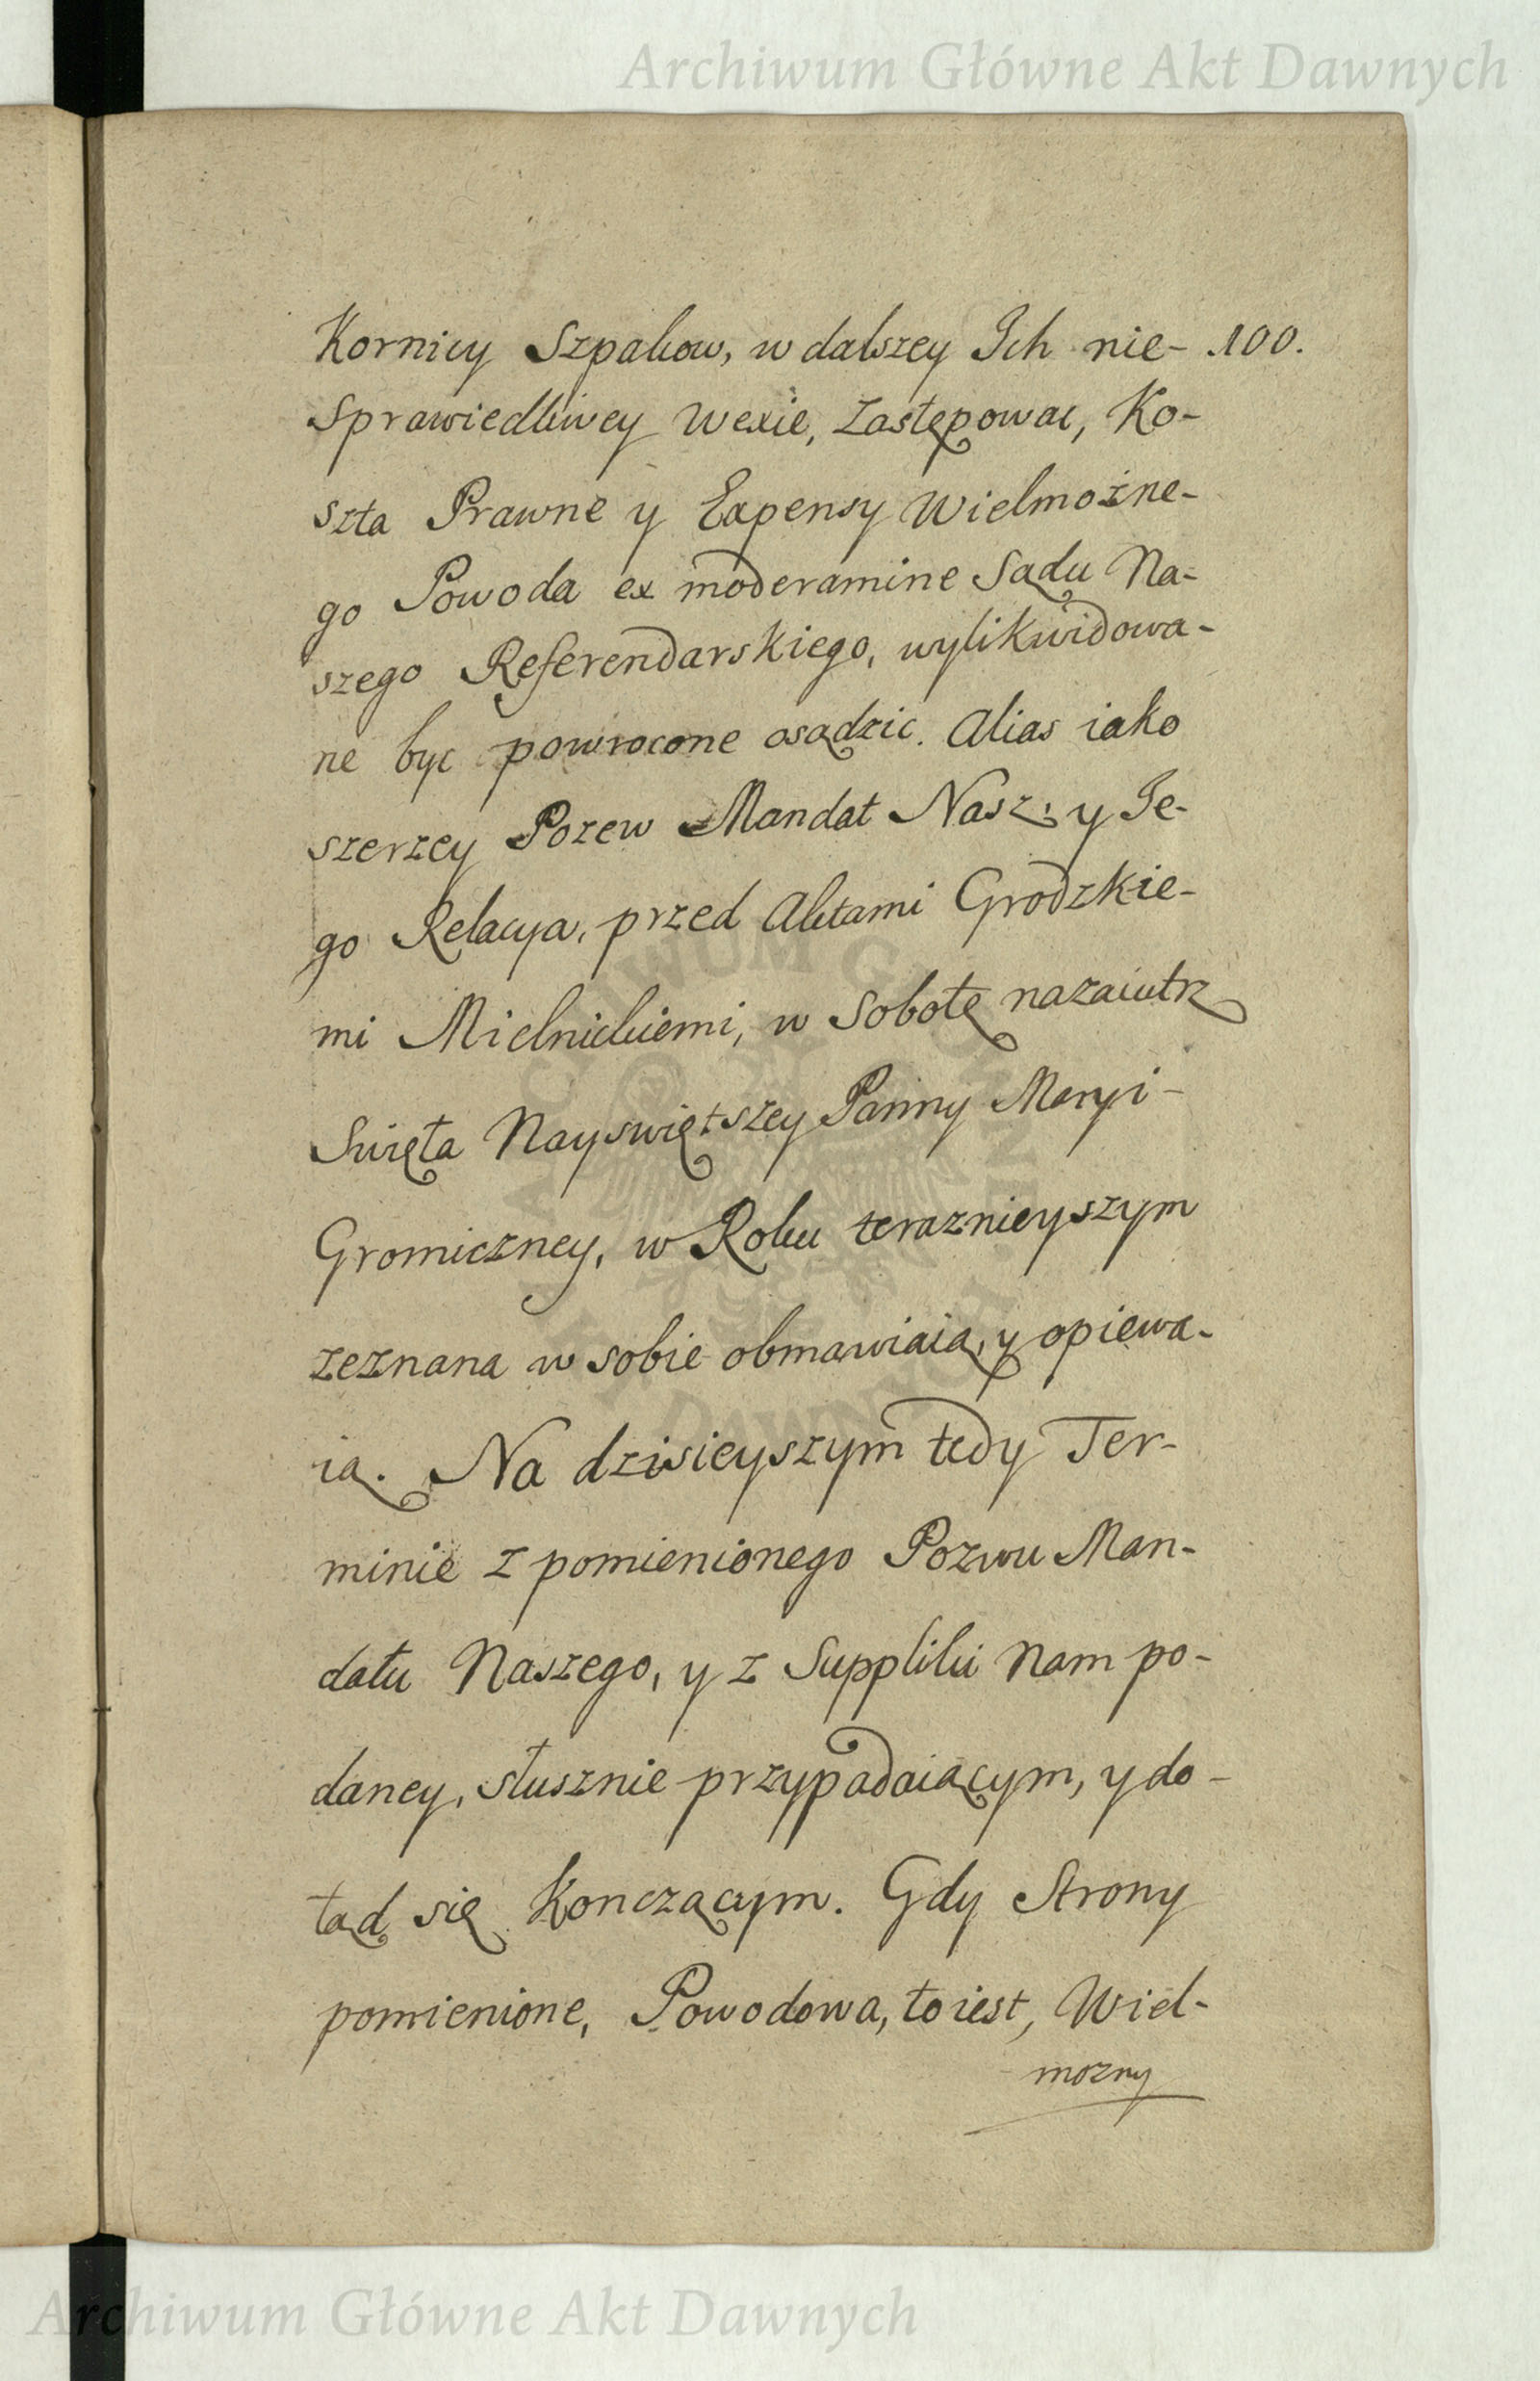 Archiwum Główne Akt Dawnych
Kornicy Szpakow, w dalszey Ich nie- 100.
Sprawiedliwey Wexie, Zastępowac, Ko-
szta Prawne y Expensy Wielmożne-
go Powoda ex moderamine Sądu Na-
szego Referendarskiego, wylikwidowa-
ne byc powrocone osądzic. Alias iako
szerzey Pozew Mandat Nasz, y Je-
go Relacya, przed Aktami Grodzkie-
mi Mielnickiemi, w Sobotę nazaiutrz
Swięta Nayswiętszey Panny Maryi-
Gromiczney, w Roku teraznieyszym
zeznana w sobie obmawiaią, y opiewa-
ią. Na dzisieyszym tedy Ter-
minie z pomienionego Pozwu Man-
datu Naszego, y z Suppliki Nam po-
daney, słusznie przypadaiącym, y do-
tąd się Konczącym. Gdy Strony
pomienione, Powodowa, to iest, Wiel-
mozny
Archiwum Główne Akt Dawnych